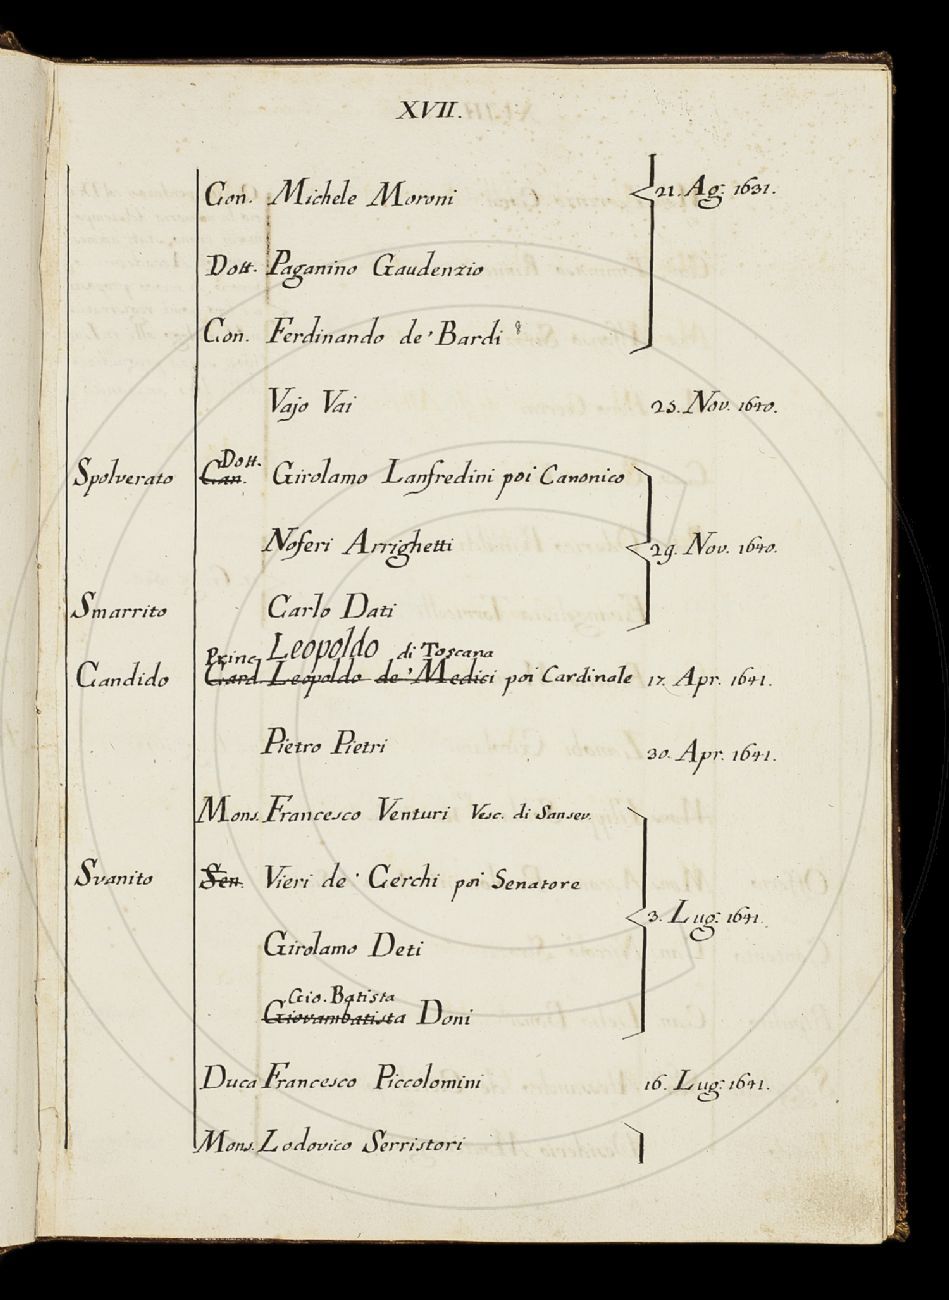 XVII.
Con. Michele Moroni 21. Ag: 1631.
Dott. Paganino Gaudenzio
Con. Ferdinando de' Bardi
Vajo Vai 23. Nov. 1640.
Dott.
Spolverato Can. Girolamo Lanfredini poi Canonico
Noferi Arrighetti 29. Nov. 1640.
Smarrito Carlo Dati
Princ. Leopoldo di Toscana
Candido Card Leopoldo de' Medici poi Cardinale 17. Apr. 1641.
Pietro Pietri 30. Apr. 1641.
Mons. Francesco Venturi Vesc. di Sansev.
Svanito Sen. Vieri de' Cerchi poi Senatore
3. Lug: 1641.
Girolamo Deti
Gio. Batista
Giovambatista Doni
Duca Francesco Piccolomini 16. Lug: 1641.
Mons. Lodovico Serristori